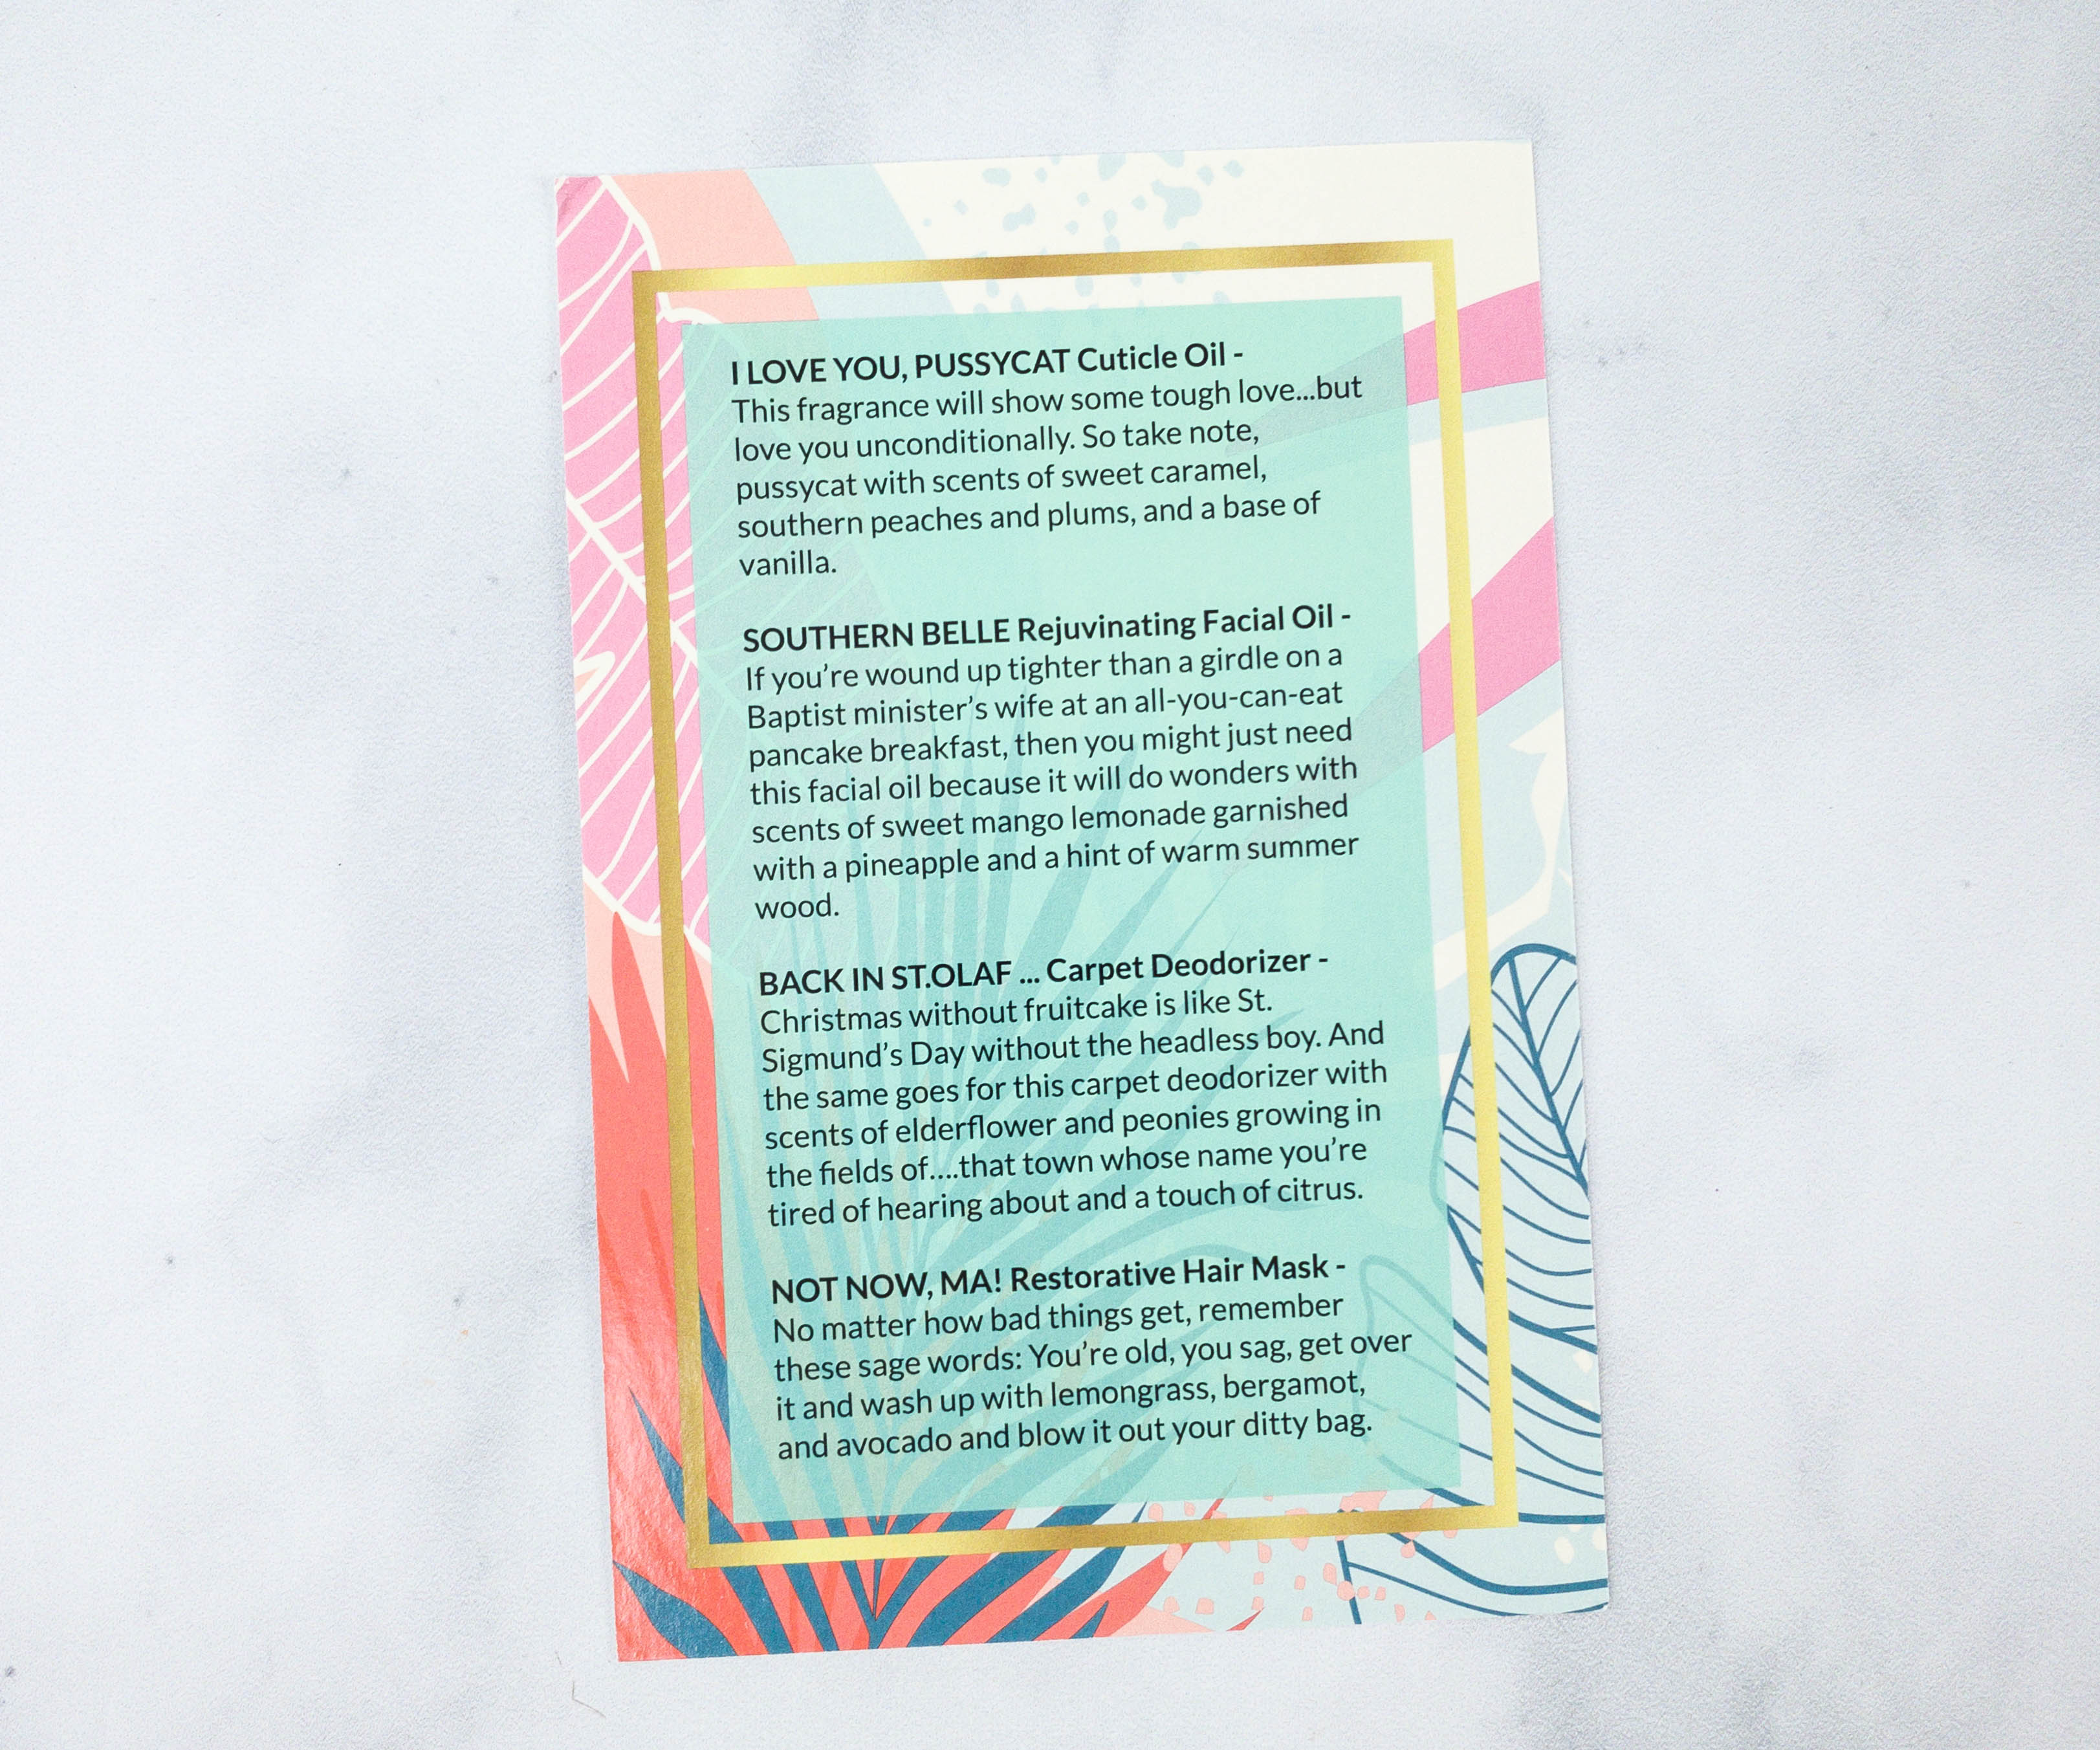 I LOVE YOU, PUSSYCAT Cuticle Oil -
This fragrance will show some tough love...but
love you unconditionally. So take note,
pussycat with scents of sweet caramel,
southern peaches and plums, and a base of
vanilla.
SOUTHERN BELLE Rejuvinating Facial Oil -
If you're wound up tighter than a girdle on a
Baptist minister's wife at an all-you-can-eat
pancake breakfast, then you might just need
this facial oil because it will do wonders with
scents of sweet mango lemonade garnished
with a pineapple and a hint of warm summer
wood.
BACK IN ST.OLAF ... Carpet Deodorizer -
Christmas without fruitcake is like St.
Sigmund's Day without the headless boy. And
the same goes for this carpet deodorizer with
scents of elderflower and peonies growing in
the fields of....that town whose name you're
tired of hearing about and a touch of citrus.
NOT NOW, MA! Restorative Hair Mask -
No matter how bad things get, remember
these sage words: You're old, you sag, get over
it and wash up with lemongrass, bergamot,
and avocado and blow it out your ditty bag.